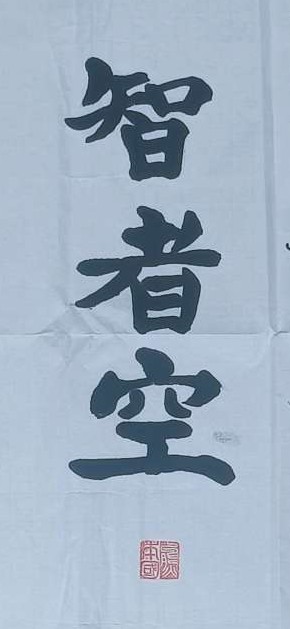 智者空